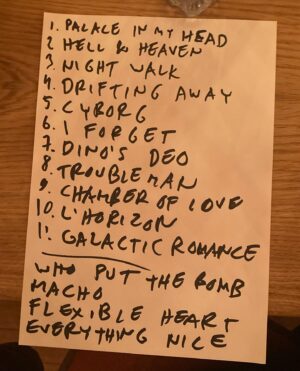 1. PALACE IN MY HEAD
2 HELL & HEAVEN
3. NIGHT WALK
4. DRIFTING AWAY
5. CYBORG
6. I FORGET
7. DINO'S DEO
8. TROUBLEMAN
9. CHAMBER OF LOVE
10. L'HORIZON
11. GALACTIC ROMANCE
WHO PUT THE BOMB
MACHO
FLEXIBLE HEART
EVERYTHING NICE